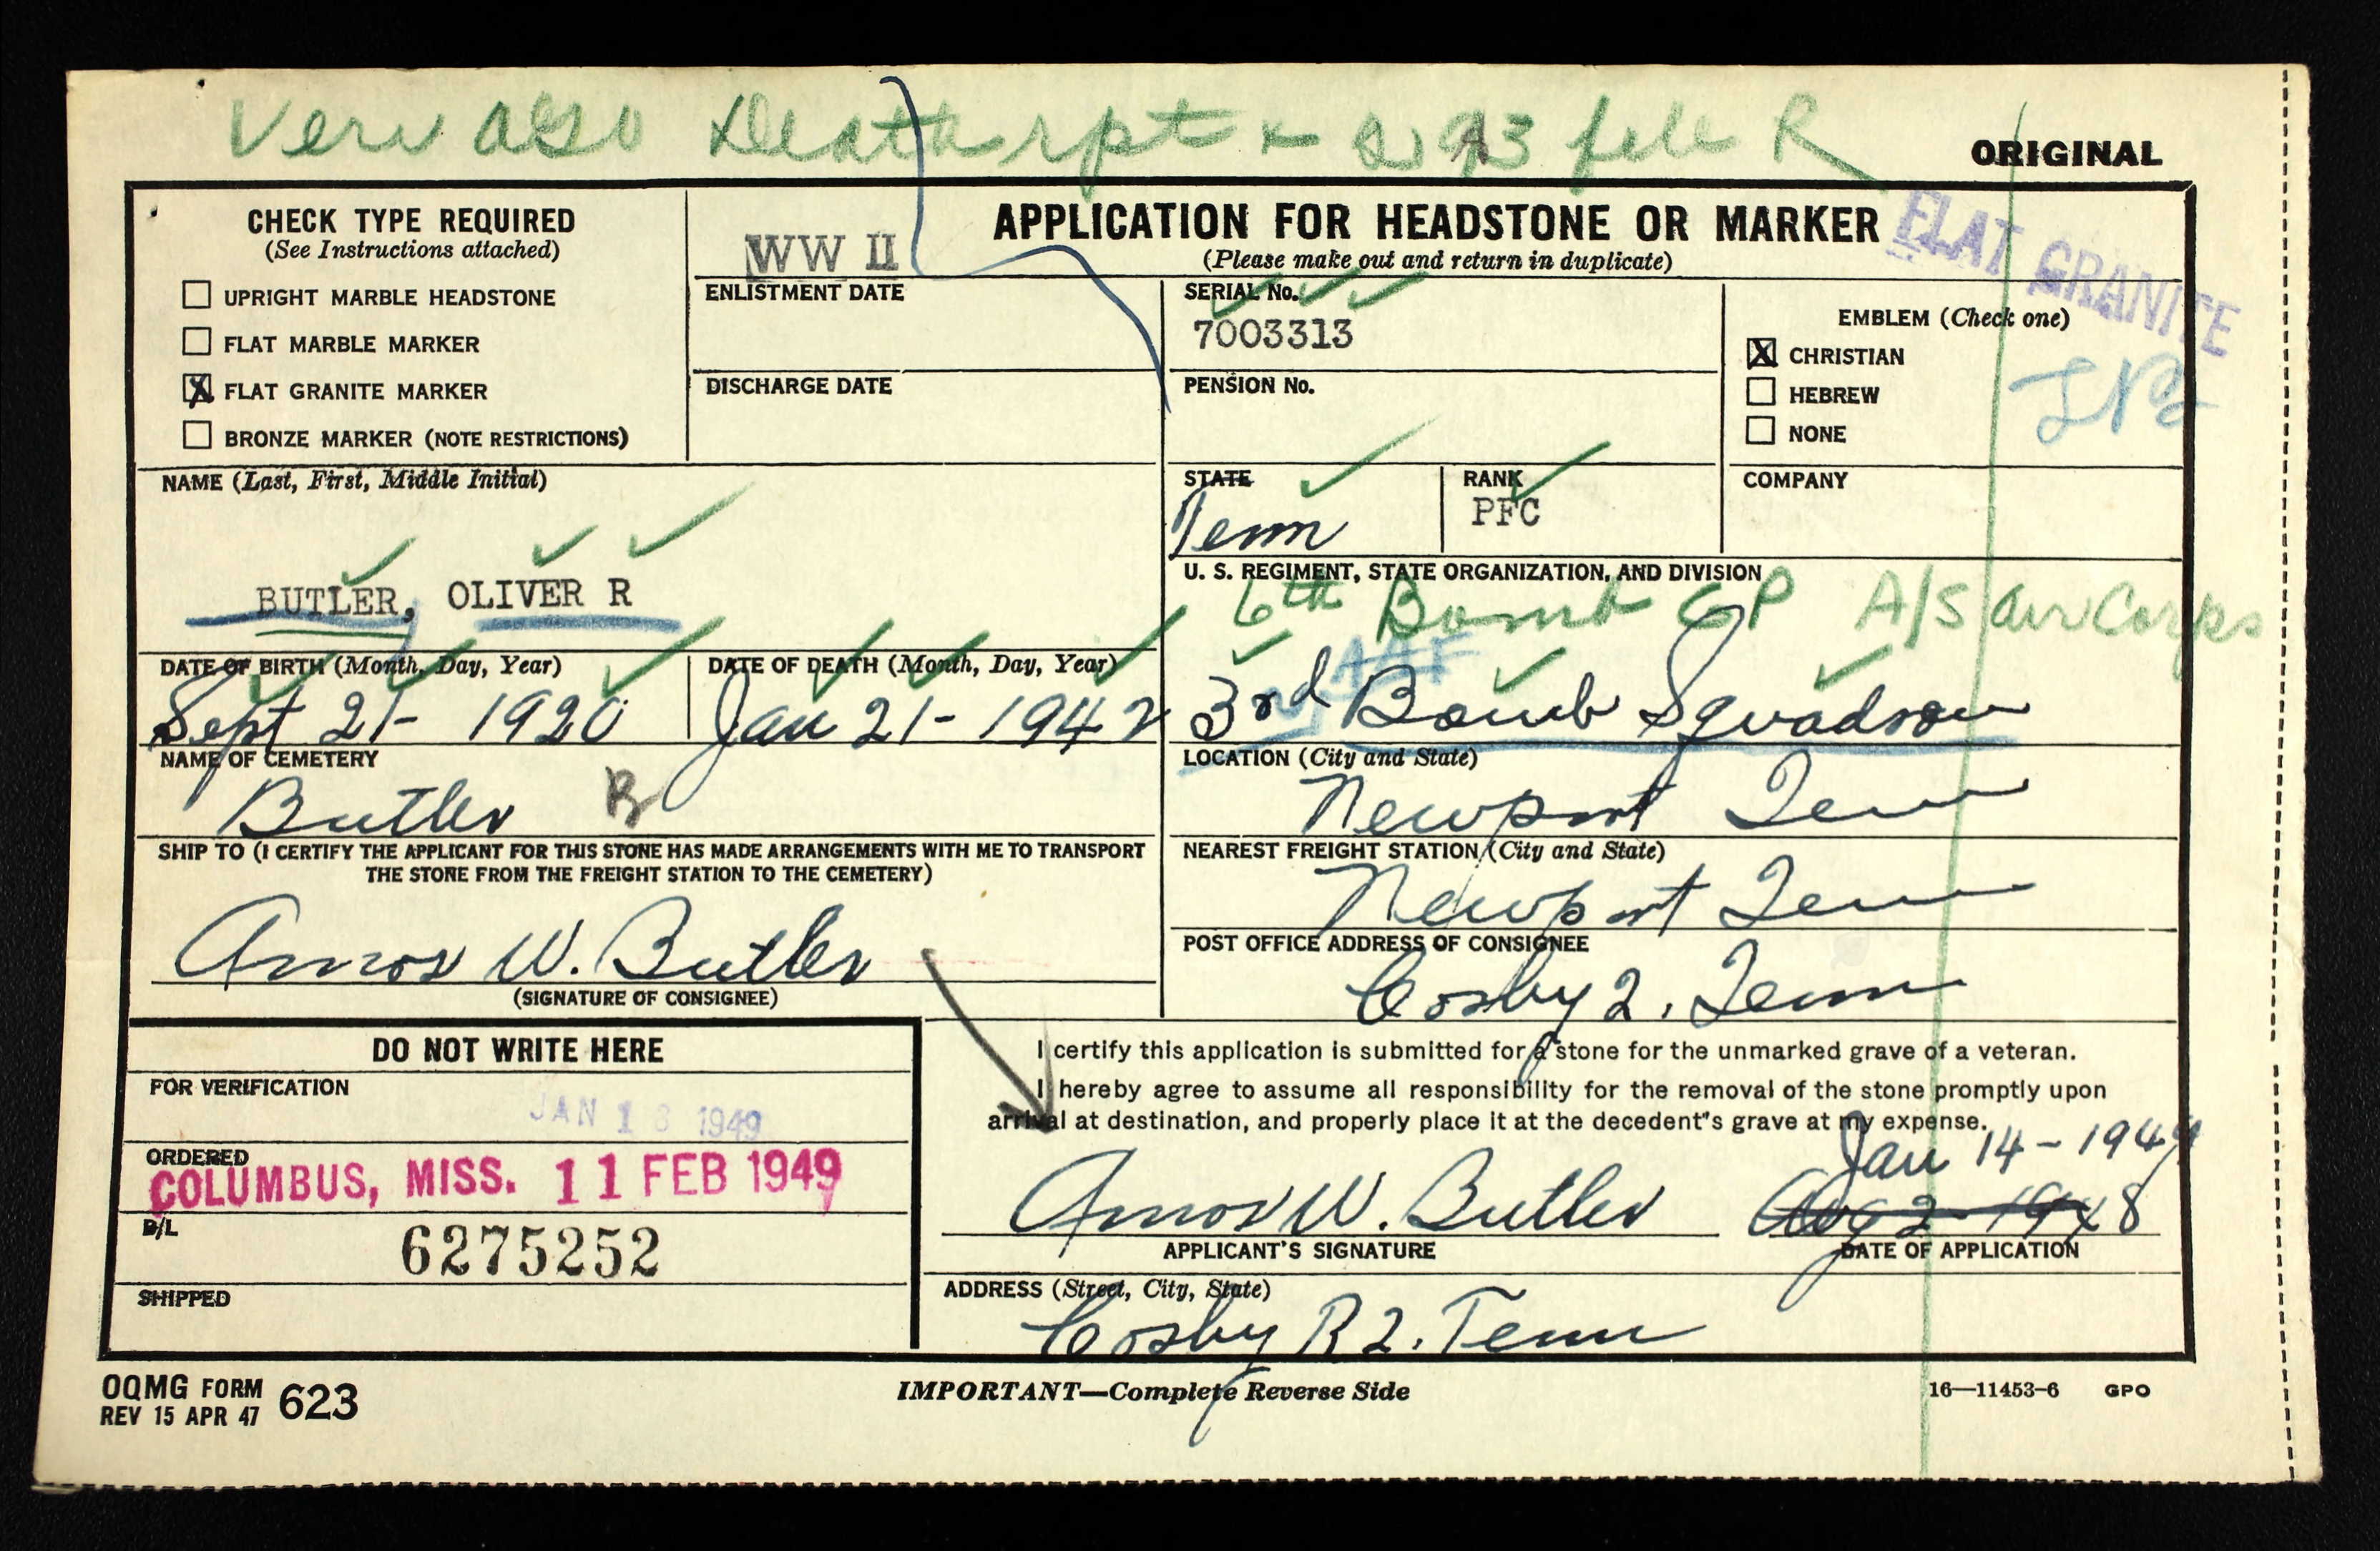 Death rpt
ORIGINAL
CHECK TYPE REQUIRED
(See Instructions attached)
UPRIGHT MARBLE HEADSTONE
FLAT MARBLE MARKER
X FLAT GRANITE MARKER
BRONZE MARKER (NOTE RESTRICTIONS)
WW II
ENLISTMENT DATE
DISCHARGE DATE
APPLICATION FOR HEADSTONE OR MARKER
(Please make out and return in duplicate)
FLAT GRANITE
SERIAL No.
7003313
PENSION No.
EMBLEM (Check one)
X CHRISTIAN
HEBREW
NONE
NAME (Last, First, Middle Initial)
BUTLER, OLIVER R
STATE
Tenn
RANK
PFC
COMPANY
U. S. REGIMENT, STATE ORGANIZATION, AND DIVISION
6th Bomb GP A/S Air Corps
AAF
3rd Bomb Squadron
DATE OF BIRTH (Month, Day, Year)
Sept 21- 1920
DATE OF DEATH (Month, Day, Year)
Jan 21- 1942
NAME OF CEMETERY
Butler B
LOCATION (City and State)
Newport Tenn
SHIP TO (I CERTIFY THE APPLICANT FOR THIS STONE HAS MADE ARRANGEMENTS WITH ME TO TRANSPORT
THE STONE FROM THE FREIGHT STATION TO THE CEMETERY)
Amos W. Butler
(SIGNATURE OF CONSIGNEE)
NEAREST FREIGHT STATION (City and State)
Newport Tenn
POST OFFICE ADDRESS OF CONSIGNEE
Cosby 2. Tenn
DO NOT WRITE HERE
FOR VERIFICATION
JAN 18 1949
ORDERED
COLUMBUS, MISS. 11 FEB 1949
B/L
6275252
SHIPPED
I certify this application is submitted for a stone for the unmarked grave of a veteran.
I hereby agree to assume all responsibility for the removal of the stone promptly upon
arrival at destination, and properly place it at the decedent's grave at my expense.
Jan 14-1949
Amos W. Butler
Aug 2 1948
APPLICANT'S SIGNATURE
DATE OF APPLICATION
ADDRESS (Street, City, State)
Cosby R 2. Tenn
OQMG FORM 623
REV 15 APR 47
IMPORTANT—Complete Reverse Side
16—11453-6 GPO